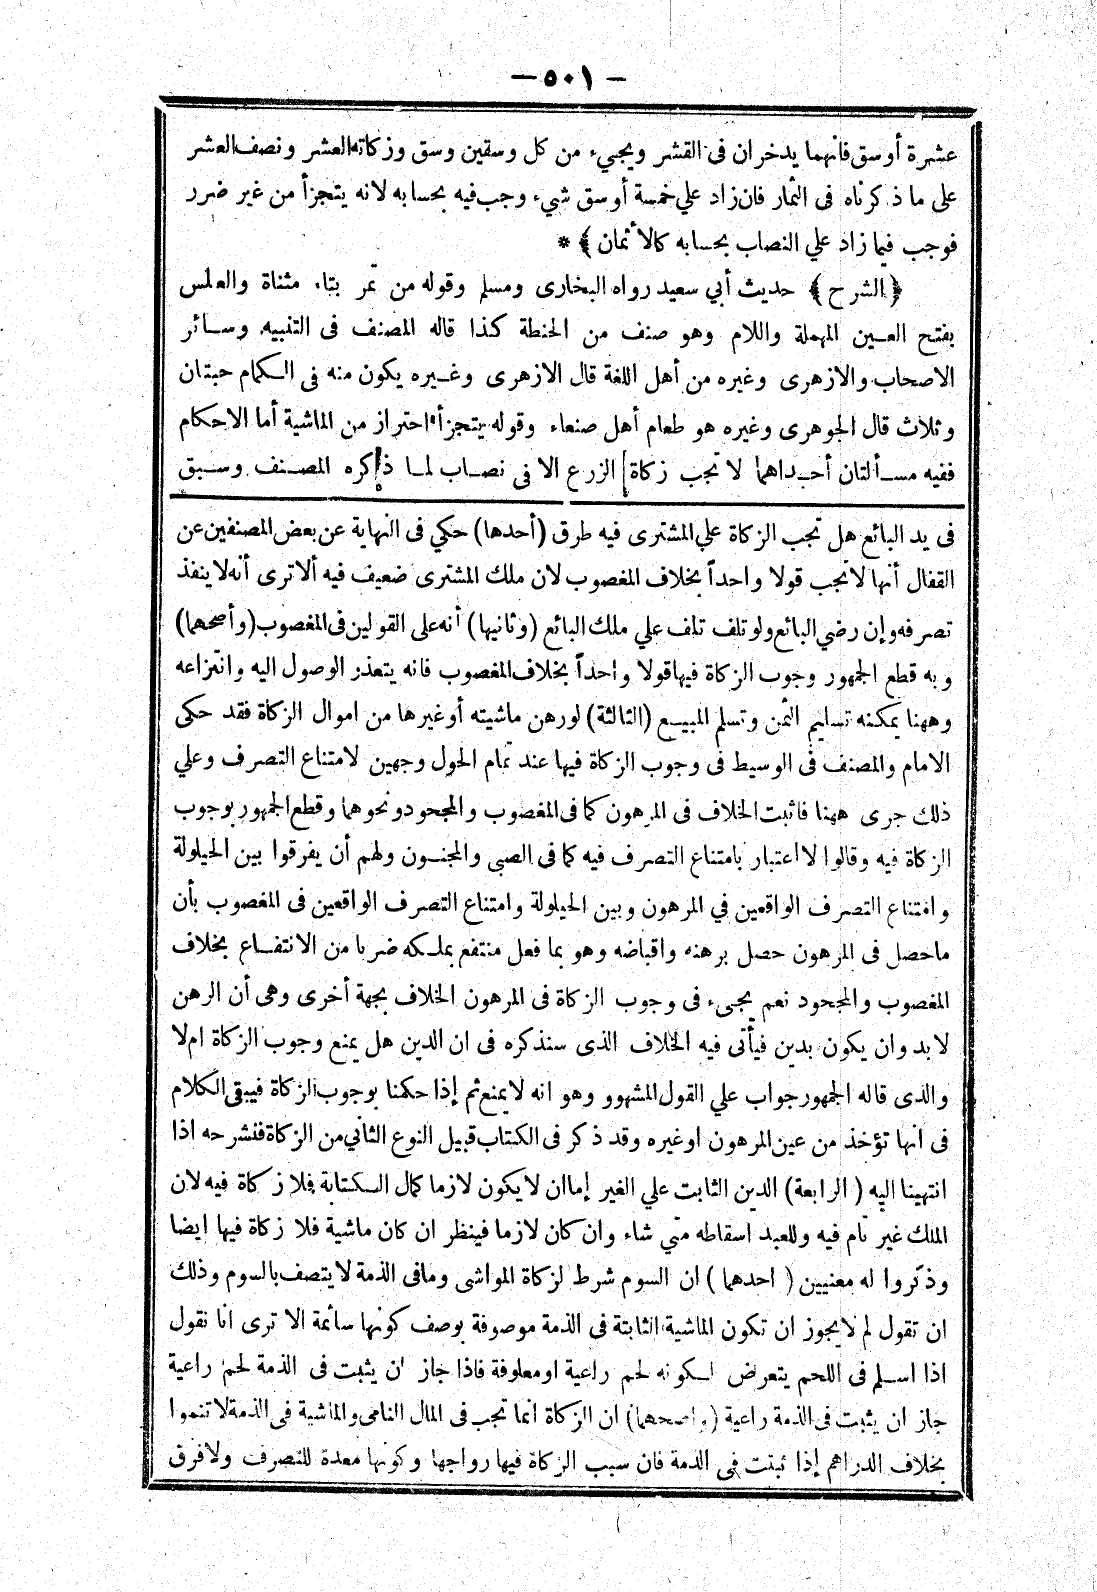 — ٥٠١ —
عشرة أوسق فانهما يدخران فى القشر ويجيء من كل وسقين وسق وزكاته العشر ونصف العشر
على ما ذكرناه فى الثمار فان زاد علي خمسة أوسق شيء وجب فيه بحسابه لانه يتجزأ من غير ضرر
فوجب فيما زاد علي النصاب بحسابه كالاثمان ﴾ *
﴿ الشرح ﴾ حديث أبي سعيد رواه البخارى ومسلم وقوله من تمر بتاء مثناة والعلس
بفتح العين المهملة واللام وهو صنف من الحنطة كذا قاله المصنف فى التنبيه وسائر
الاصحاب والازهرى وغيره من أهل اللغة قال الازهرى وغيره يكون منه فى الكمام حبتان
وثلاث قال الجوهرى وغيره هو طعام أهل صنعاء وقوله يتجزأ احتراز من الماشية أما الاحكام
ففيه مسألتان أحداهما لا تجب زكاة الزرع الا فى نصاب لما ذكره المصنف وسبق
فى يد البائع هل تجب الزكاة علي المشترى فيه طرق (أحدها) حكي فى النهاية عن بعض المصنفين عن
القفال أنها لا تجب قولا واحداً بخلاف المغصوب لان ملك المشترى ضعيف فيه ألا ترى أنه لا ينفذ
تصرفه وإن رضي البائع ولو تلف تلف علي ملك البائع (وثانيها) أنه على القولين فى المغصوب (وأصحهما)
وبه قطع الجمهور وجوب الزكاة فيها قولا واحداً بخلاف المغصوب فانه يتعذر الوصول اليه وانتزاعه
وههنا يمكنه تسليم الثمن وتسلم المبيع (الثالثة) لو رهن ماشيته أو غيرها من اموال الزكاة فقد حكى
الامام والمصنف فى الوسيط فى وجوب الزكاة فيها عند تمام الحول وجهين لامتناع التصرف وعلي
ذلك جرى ههنا فاثبت الخلاف فى المرهون كما فى المغصوب والمجحود ونحوهما وقطع الجمهور بوجوب
الزكاة فيه وقالوا لا اعتبار بامتناع التصرف فيه كما فى الصبي والمجنون ولهم أن يفرقوا بين الحيلولة
وامتناع التصرف الواقعين في المرهون وبين الحيلولة وامتناع التصرف الواقعين فى المغصوب بأن
ماحصل فى المرهون حصل برهنه واقباضه وهو بما فعل منتفع بملكه ضربا من الانتفاع بخلاف
المغصوب والمجحود نعم يجىء فى وجوب الزكاة فى المرهون الخلاف بجهة أخرى وهى أن الرهن
لابد وان يكون بدين فيأتى فيه الخلاف الذى سنذكره فى ان الدين هل يمنع وجوب الزكاة ام لا
والذى قاله الجمهور جواب علي القول المشهوو وهو انه لا يمنع ثم إذا حكمنا بوجوب الزكاة فيبقى الكلام
فى انها تؤخذ من عين المرهون او غيره وقد ذكر فى الكتاب قبيل النوع الثاني من الزكاة فنشرحه اذا
انتهينا اليه ( الرابعة) الدين الثابت علي الغير إما ان لا يكون لازما كمال الكتابة فلا زكاة فيه لان
الملك غير تام فيه وللعبد اسقاطه متي شاء وان كان لازما فينظر ان كان ماشية فلا زكاة فيها ايضا
وذكروا له معنيين ( احدهما ) ان السوم شرط لزكاة المواشى ومافى الذمة لا يتصف بالسوم وذلك
ان تقول لم لا يجوز ان تكون الماشية الثابتة فى الذمة موصوفة بوصف كونها سائمة الا ترى انا نقول
اذا اسلم فى اللحم يتعرض لكونه لحم راعية او معلوفة فاذا جاز ان يثبت فى الذمة لحم راعية
جاز ان يثبت فى الذمة راعية (واصحهما) ان الزكاة انما تجب فى المال النامى والماشية فى الذمة لا تنموا
بخلاف الدراهم إذا ثبتت في الذمة فان سبب الزكاة فيها رواجها وكونها معدة للتصرف ولا فرق